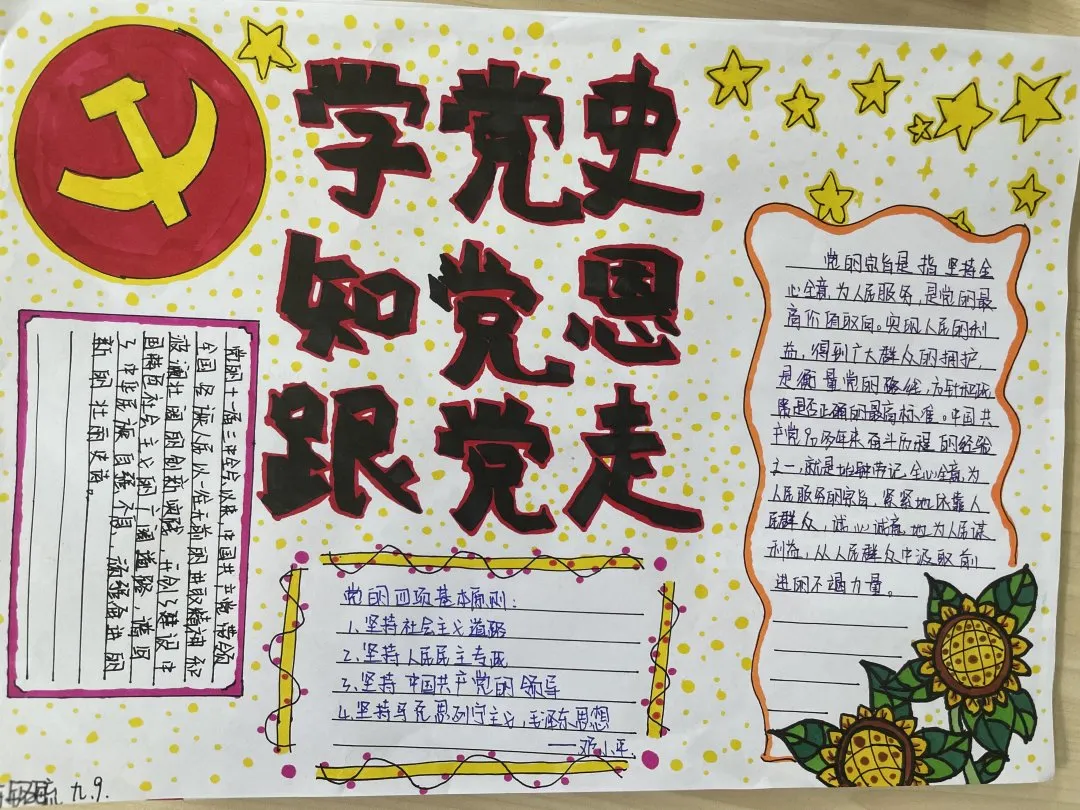 学党史
知党恩
跟党走
党的十一届三中全会以来,中国共产党带领
全国各族人民以一往无前的进取精神和
波澜壮阔的创新实践,开创了建设中
国特色社会主义的广阔道路,谱写
了中华民族自强不息、顽强奋进的
新的壮丽史诗。
党的四项基本原则:
1.坚持社会主义道路
2.坚持人民民主专政
3.坚持中国共产党的领导
4.坚持马克思列宁主义,毛泽东思想
——邓小平
党的宗旨是指坚持全
心全意为人民服务,是党的最
高价值取向。实现人民的利
益,得到广大群众的拥护,
是衡量党的路线、方针和政
策是否正确的最高标准。中国共
产党90多年来奋斗历程的经验
之一,就是始终牢记全心全意为
人民服务的宗旨,紧紧地依靠人
民群众,诚心诚意地为人民谋
利益,从人民群众中汲取前
进的不竭力量。
九.9.